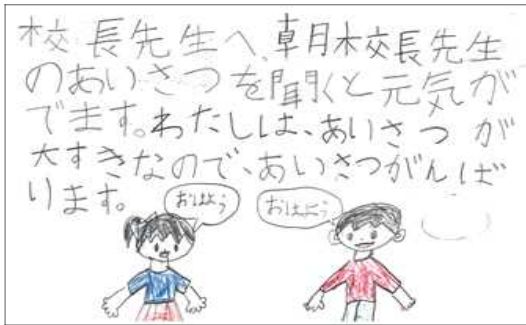 校長先生へ、朝校長先生
のあいさつを聞くと元気が
でます。わたしは、あいさつが
大すきなので、あいさつがんば
ります。
おはよう
おはよう